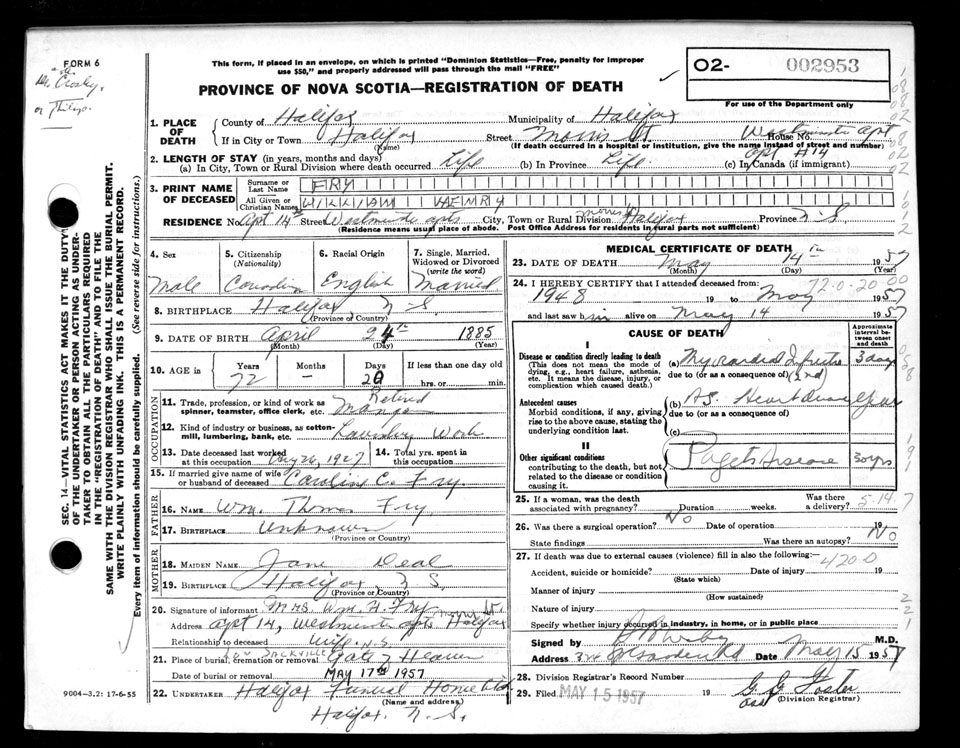 FORM 6
Crosby,
or
This form, if placed in an envelope, on which is printed "Dominion Statistics—Free, penalty for improper
use $50," and properly addressed will pass through the mail "FREE"
PROVINCE OF NOVA SCOTIA—REGISTRATION OF DEATH
O2- 002953
For use of the Department only
1. PLACE OF DEATH
County of Halifax Municipality of Halifax
If in City or Town Halifax Street Morris St House No. Westminster apt
(Name) (If death occurred in a hospital or institution, give the name instead of street and number)
apt #14
2. LENGTH OF STAY (in years, months and days)
(a) In City, Town or Rural Division where death occurred Life (b) In Province Life (c) In Canada (if immigrant)
3. PRINT NAME OF DECEASED
Surname or Last Name FRY
All Given or Christian Names WILLIAM HENRY
RESIDENCE No. Apt 14 Street Westminster apts City, Town or Rural Division Morris Halifax Province N-S
(Residence means usual place of abode. Post Office Address for residents in rural parts not sufficient)
4. Sex
Male
5. Citizenship
(Nationality)
Canadian
6. Racial Origin
English
7. Single, Married, Widowed or Divorced
(write the word)
Married
8. BIRTHPLACE Halifax N-S
(Province or Country)
9. DATE OF BIRTH April 24th 1885
(Month) (Day) (Year)
10. AGE in Years Months Days If less than one day old
72 - 20 hrs. or min.
OCCUPATION
11. Trade, profession, or kind of work as spinner, teamster, office clerk, etc. Retired
12. Kind of industry or business, as cotton-mill, lumbering, bank, etc. Work
13. Date deceased last worked at this occupation 26, 1927
14. Total yrs. spent in this occupation
15. If married give name of wife or husband of deceased Caroline C. Fry.
FATHER
16. NAME Wm. Thomas Fry
17. BIRTHPLACE Unknown
(Province or Country)
MOTHER
18. MAIDEN NAME Jane Deal
19. BIRTHPLACE Halifax N S.
(Province or Country)
20. Signature of informant Mrs. Wm. H. Fry
Address apt 14, Westminster apts Morris St. Halifax
Relationship to deceased Wife N.S.
21. Place of burial, cremation or removal SACKVILLE Gate of Heaven
Date of burial or removal MAY 17th 1957
22. UNDERTAKER Halifax Funeral Home Ltd
(Name and address)
Halifax. N. S.
MEDICAL CERTIFICATE OF DEATH
23. DATE OF DEATH May 14th 1957
(Month) (Day) (Year)
24. I HEREBY CERTIFY that I attended deceased from: 72-0-20-00
1948 19 to May 1957
and last saw him alive on May 14 1957
CAUSE OF DEATH
Approximate interval between onset and death
I
Disease or condition directly leading to death
(This does not mean the mode of dying, e.g., heart failure, asthenia, etc. It means the disease, injury, or complication which caused death.)
(a) Myocardial Infarction 3 days
due to (or as a consequence of) (2nd)
Antecedent causes
Morbid conditions, if any, giving rise to the above cause, stating the underlying condition last.
(b) AS. Heart Disease
due to (or as a consequence of)
(c)
II
Other significant conditions
contributing to the death, but not related to the disease or condition causing it.
Pagets Disease 30 yrs
25. If a woman, was the death associated with pregnancy? No Duration weeks. Was there a delivery? 5-14-7
26. Was there a surgical operation? Date of operation 19
State findings Was there an autopsy? No
27. If death was due to external causes (violence) fill in also the following:
420 0
Accident, suicide or homicide? Date of injury 19
(State which)
Manner of injury
(How sustained)
Nature of injury
Specify whether injury occurred in industry, in home, or in public place
Signed by M.D.
Address Date May 15 1957
28. Division Registrar's Record Number
29. Filed MAY 15 1957 19 G G Foster
(Division Registrar)
9004-3.2: 17-6-55
SEC. 14—VITAL STATISTICS ACT MAKES IT THE DUTY
OF THE UNDERTAKER OR PERSON ACTING AS UNDER-
TAKER TO OBTAIN ALL THE PARTICULARS REQUIRED
IN THE "REGISTRATION OF DEATH" AND TO FILE THE
SAME WITH THE DIVISION REGISTRAR WHO SHALL ISSUE THE BURIAL PERMIT.
WRITE PLAINLY WITH UNFADING INK. THIS IS A PERMANENT RECORD.
Every item of information should be carefully supplied. (See reverse side for instructions.)